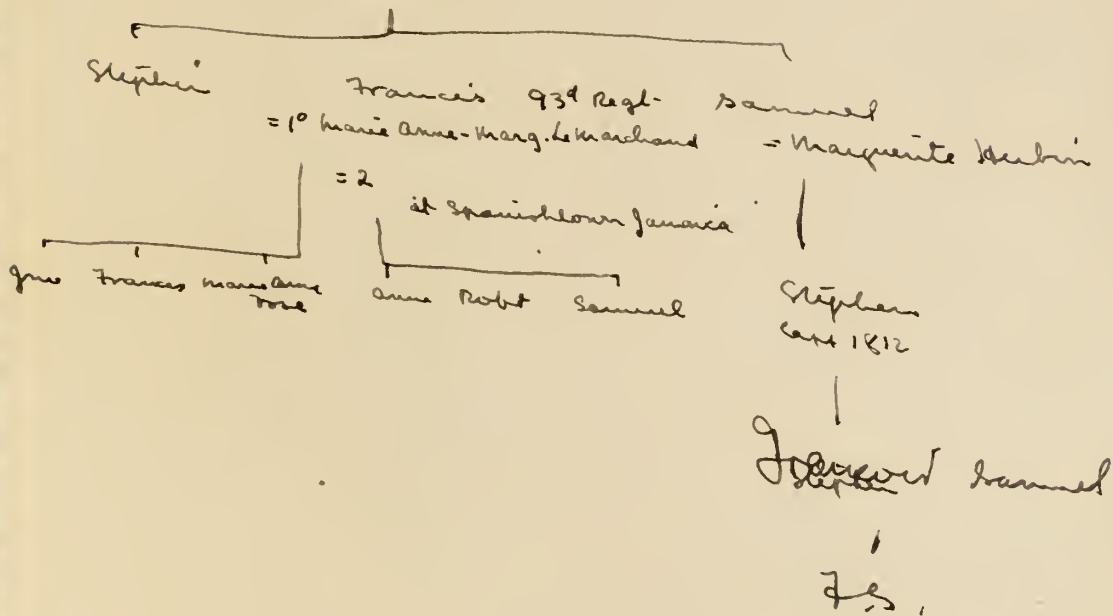 Stephen Francis 93d Regt- Samuel
= 1º Marie Anne-Marg. LeMarchand = Marguerite Herbin
= 2
at Spanishtown Jamaica
Jane Francis Marie Anne Anne Robt Samuel
Rose
Stephen
Capt 1812
François Samuel
Stephen
F.S.